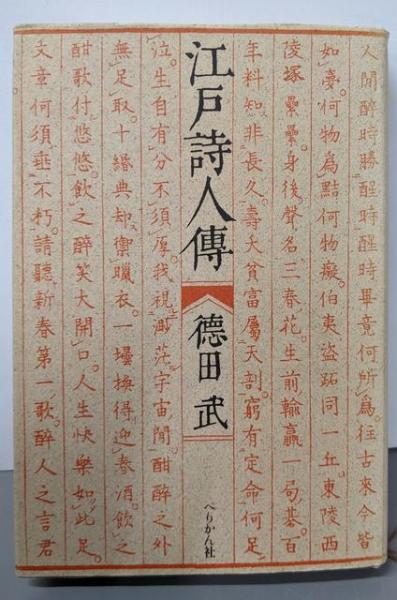 江戸詩人傳
德田武
ぺりかん社
人間醉時勝醒時醒時畢竟何所爲往古來今皆
如夢何物爲黠何物癡伯夷盜跖同一丘東陵西
陵塚纍纍身後聲名三春花生前輸贏一局碁百
年料知非長久壽夭貧富屬天剖窮有定命何足
泣生自有分不須厚我視渺茫宇宙間酣醉之外
無足取十緡典却禦臘衣一壜換得迎春酒飲之
酣歌付悠悠飲之醉笑大開口人生快樂如此足
文章何須垂不朽請聽新春第一歌醉人之言君